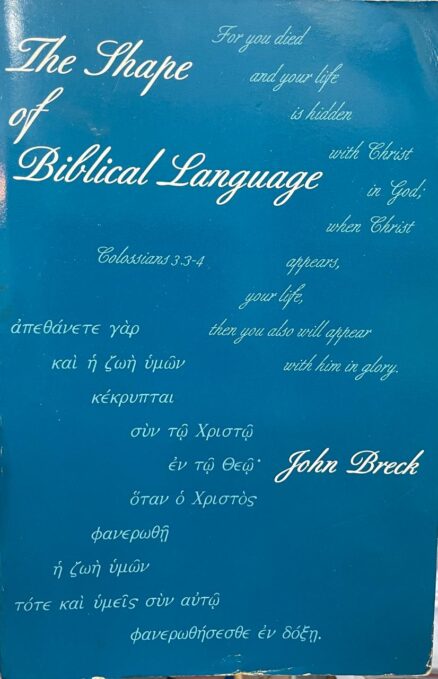 The Shape
of
Biblical Language
For you died
and your life
is hidden
with Christ
in God;
when Christ
appears,
your life,
then you also will appear
with him in glory.
Colossians 3.3-4
ἀπεθάνετε γὰρ
καὶ ἡ ζωὴ ὑμῶν
κέκρυπται
σὺν τῷ Χριστῷ
ἐν τῷ Θεῷ·
ὅταν ὁ Χριστὸς
φανερωθῇ
ἡ ζωὴ ὑμῶν
τότε καὶ ὑμεῖς σὺν αὐτῷ
φανερωθήσεσθε ἐν δόξῃ.
John Breck